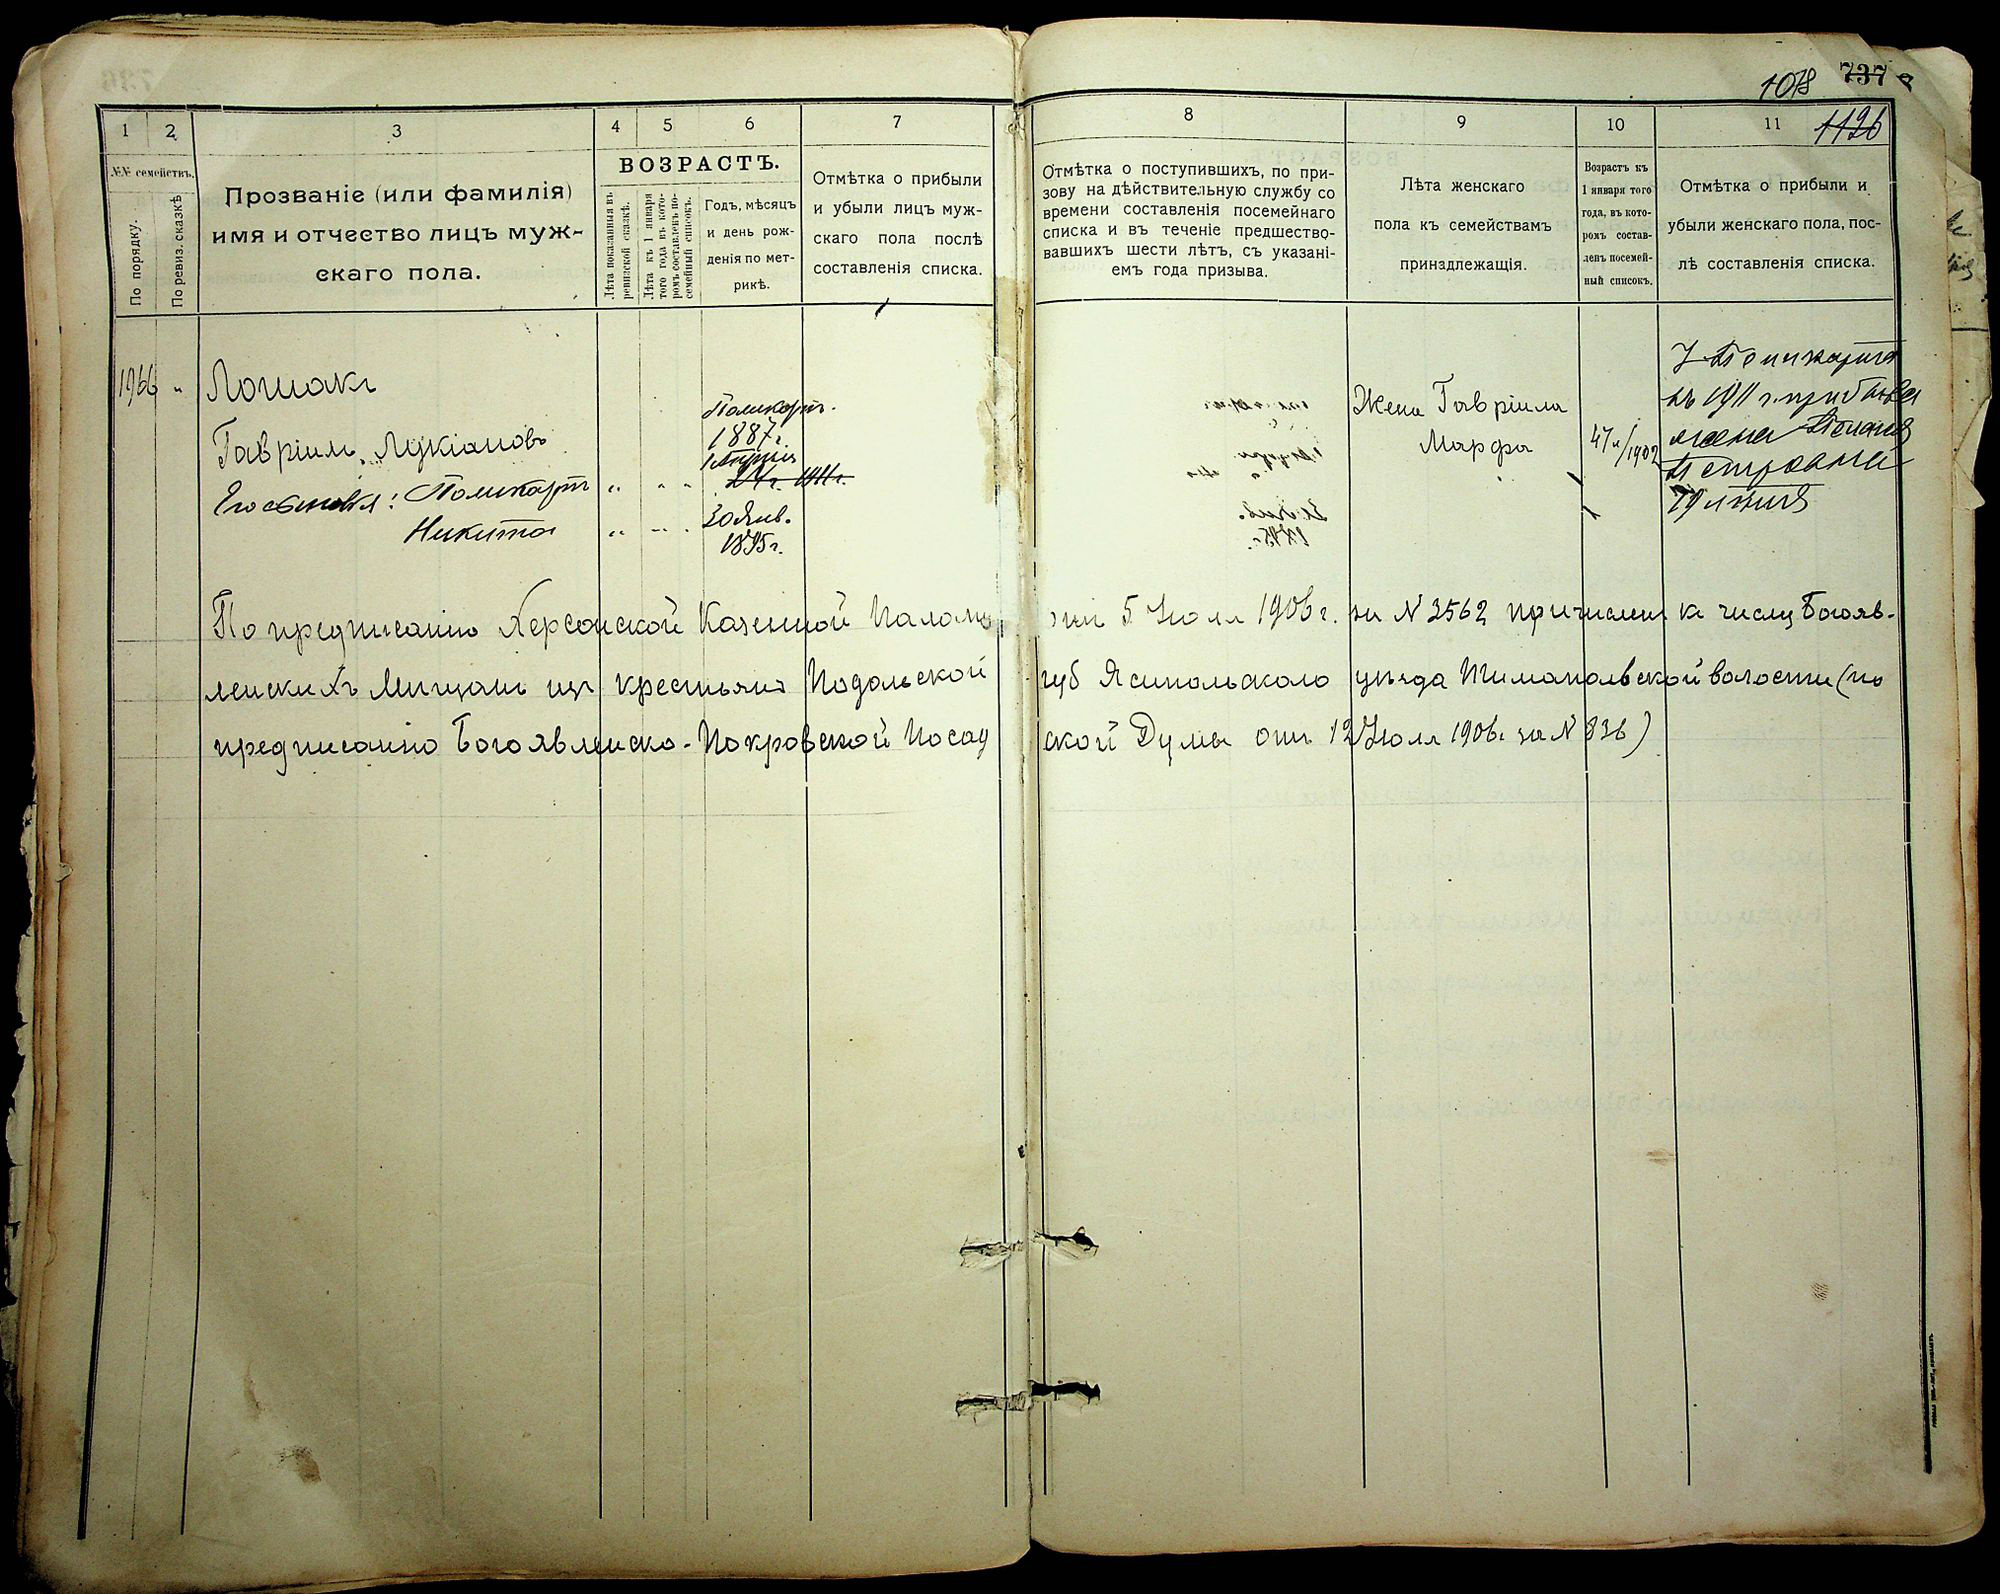 1078 737
1 2 3 4 5 6 7 8 9 10 11 1126
№№ семействъ.
По порядку.
По ревиз. сказкѣ
Прозваніе (или фамилія)
имя и отчество лицъ муж-
скаго пола.
ВОЗРАСТЪ.
Лѣта показанныя въ
ревизской сказкѣ.
Лѣта къ 1 января
того года въ кото-
ромъ составленъ по-
семейный списокъ.
Годъ, мѣсяцъ
и день рож-
денія по мет-
рикѣ.
Отмѣтка о прибыли
и убыли лицъ муж-
скаго пола послѣ
составленія списка.
Отмѣтка о поступившихъ, по при-
зову на дѣйствительную службу со
времени составленія посемейнаго
списка и въ теченіе предшество-
вавшихъ шести лѣтъ, съ указані-
емъ года призыва.
Лѣта женскаго
пола къ семействамъ
принадлежащія.
Возрастъ къ
1 января того
года, въ кото-
ромъ состав-
ленъ посемей-
ный списокъ.
Отмѣтка о прибыли и
убыли женскаго пола, пос-
лѣ составленія списка.
1966 " Лошакъ
Гавріилъ Лукіановъ
Его сыновья: Поликарпъ " " "
Никита " " "
Поликарп.
1887г.
24г. 1911г.
30 Янв.
1895г.
Жена Гавріила
Марфа
47 л/1902
У Поликарпа
въ 1911 г. прибыла
жена
Петровна
19 лѣтъ
По предписанію Херсонской Казенной Палаты от 5 Іюля 1906г. за N 3562 причислен к числу Богояв-
ленскихъ Мещанъ из крестьянъ Подольской губ Ямпольскаго уѣзда волости (по
предписанію Богоявленско-Покровской Посадской Думы от 12 Іюля 1906г за N 836)